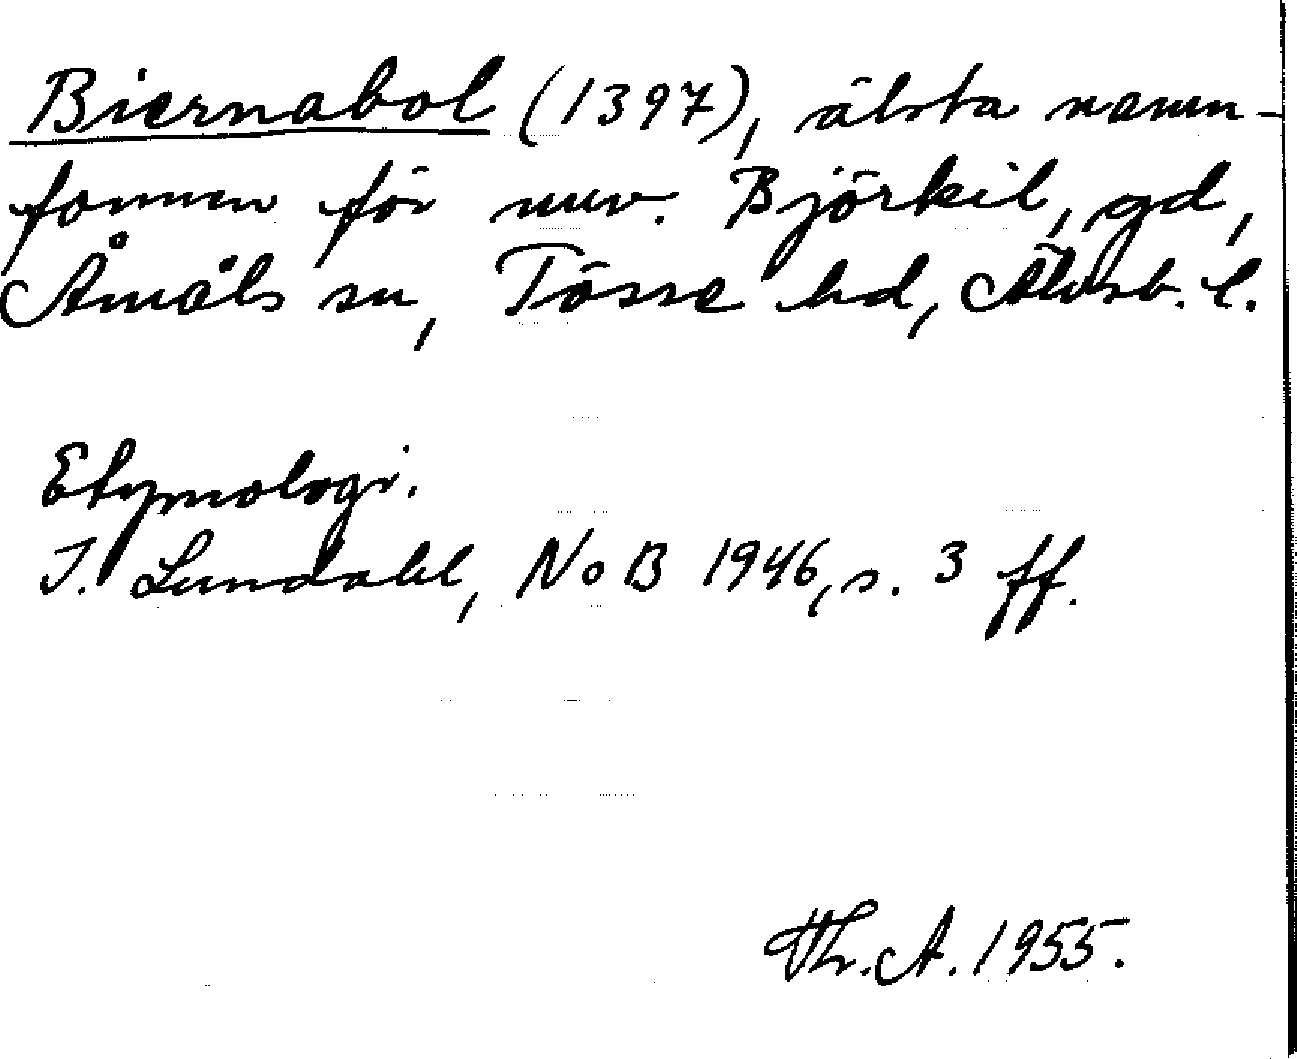 Biernabol (1397), älsta namn-
formen för nuv. Björkil, gd,
Åmåls sn, Tösse hd, Älvsb. l.
Etymologi.
I. Lundahl, NoB 1946, s. 3 ff.
Th. A. 1955.